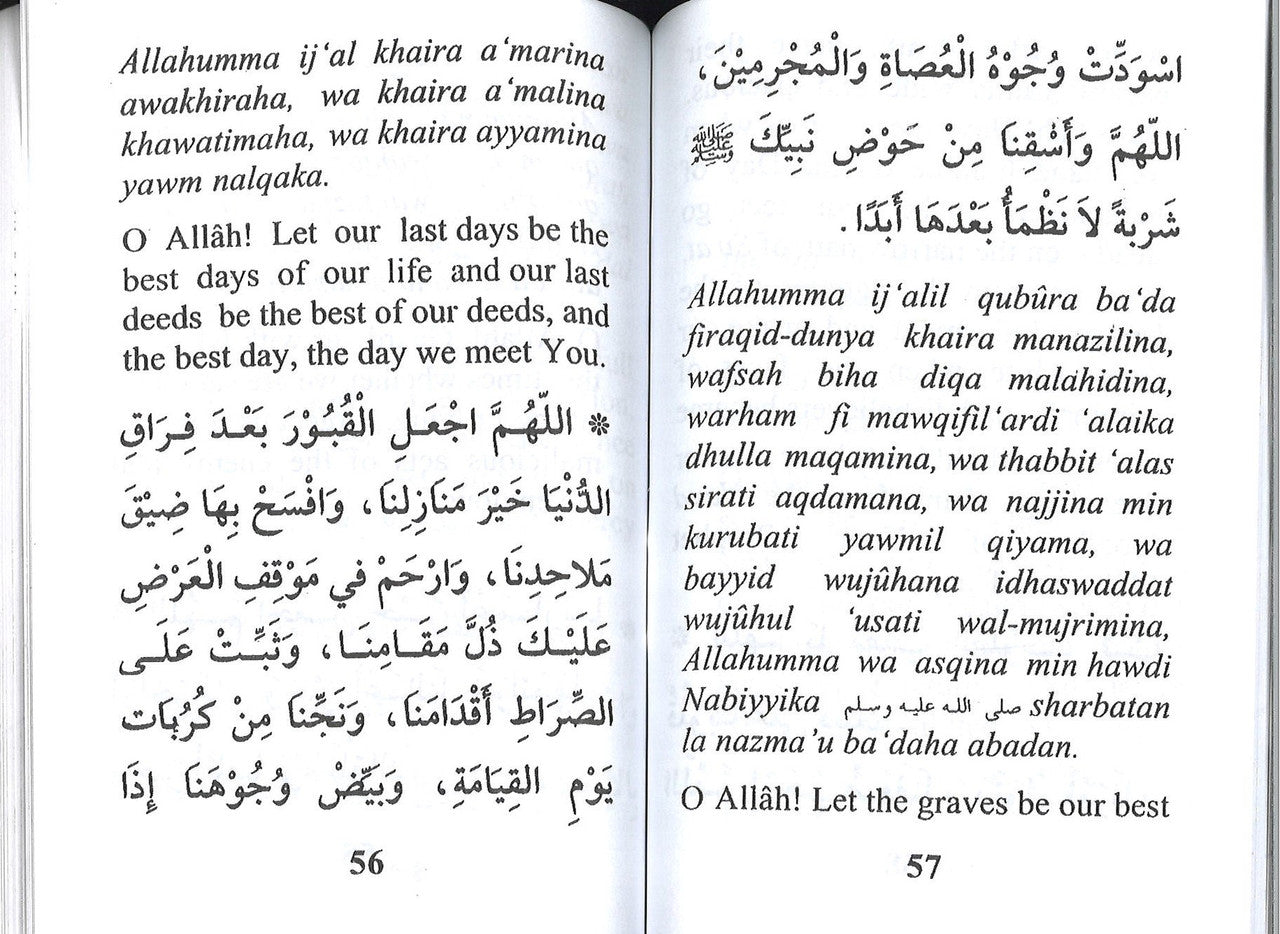 Allahumma ij‘al khaira a‘marina
awakhiraha, wa khaira a‘malina
khawatimaha, wa khaira ayyamina
yawm nalqaka.
O Allâh! Let our last days be the
best days of our life and our last
deeds be the best of our deeds, and
the best day, the day we meet You.
❋ اللّهُمَّ اجْعَلِ الْقُبُوْرَ بَعْدَ فِرَاقِ
الدُّنْيَا خَيْرَ مَنَازِلِنَا، وَافْسَحْ بِهَا ضِيْقَ
مَلاحِدِنَا، وَارْحَمْ في مَوْقِفِ الْعَرْضِ
عَلَيْكَ ذُلَّ مَقَامِنَا، وَثَبِّتْ عَلَى
الصِّرَاطِ أَقْدَامَنَا، وَنَجِّنَا مِنْ كُرُبَات
يَوْمِ القِيَامَةِ، وَبَيِّضْ وُجُوْهَنَا إِذَا
56
اسْوَدَّتْ وُجُوْهُ الْعُصَاةِ وَالْمُجْرِمِيْنَ،
اللّهُمَّ وَأَسْقِنَا مِنْ حَوْضِ نَبِيِّكَ ﷺ
شَرْبةً لاَ نَظْمَأُ بَعْدَهَا أَبَدًا.
Allahumma ij‘alil qubûra ba‘da
firaqid-dunya khaira manazilina,
wafsah biha diqa malahidina,
warham fi mawqifil‘ardi ‘alaika
dhulla maqamina, wa thabbit ‘alas
sirati aqdamana, wa najjina min
kurubati yawmil qiyama, wa
bayyid wujûhana idhaswaddat
wujûhul ‘usati wal-mujrimina,
Allahumma wa asqina min hawdi
Nabiyyika صلى الله عليه وسلم sharbatan
la nazma’u ba‘daha abadan.
O Allâh! Let the graves be our best
57